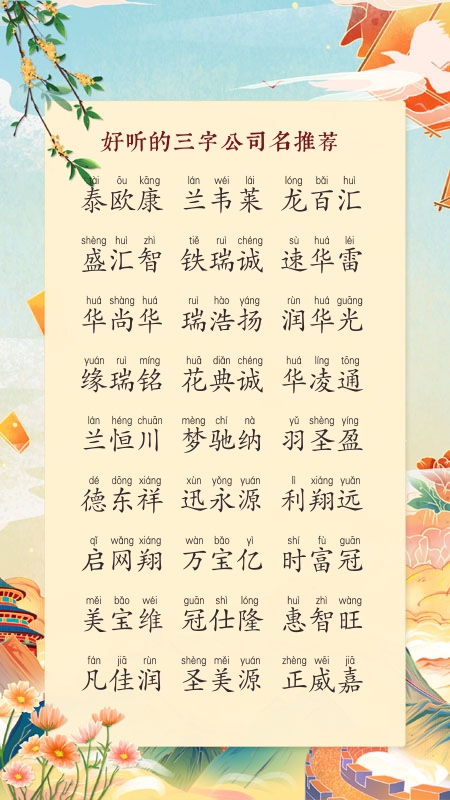 好听的三字公司名推荐
tài ōu kāng lán wéi lái lóng bǎi huì
泰欧康 兰韦莱 龙百汇
shèng huì zhì tiě ruì chéng sù huá léi
盛汇智 铁瑞诚 速华雷
huá shàng huá ruì hào yáng rùn huá guāng
华尚华 瑞浩扬 润华光
yuán ruì míng huā diǎn chéng huá líng tōng
缘瑞铭 花典诚 华凌通
lán héng chuān mèng chí nà yǔ shèng yíng
兰恒川 梦驰纳 羽圣盈
dé dōng xiáng xùn yǒng yuán lì xiáng yuǎn
德东祥 迅永源 利翔远
qǐ wǎng xiáng wàn bǎo yì shí fù guān
启网翔 万宝亿 时富冠
měi bǎo wéi guān shì lóng huì zhì wàng
美宝维 冠仕隆 惠智旺
fán jiā rùn shèng měi yuán zhèng wēi jiā
凡佳润 圣美源 正威嘉